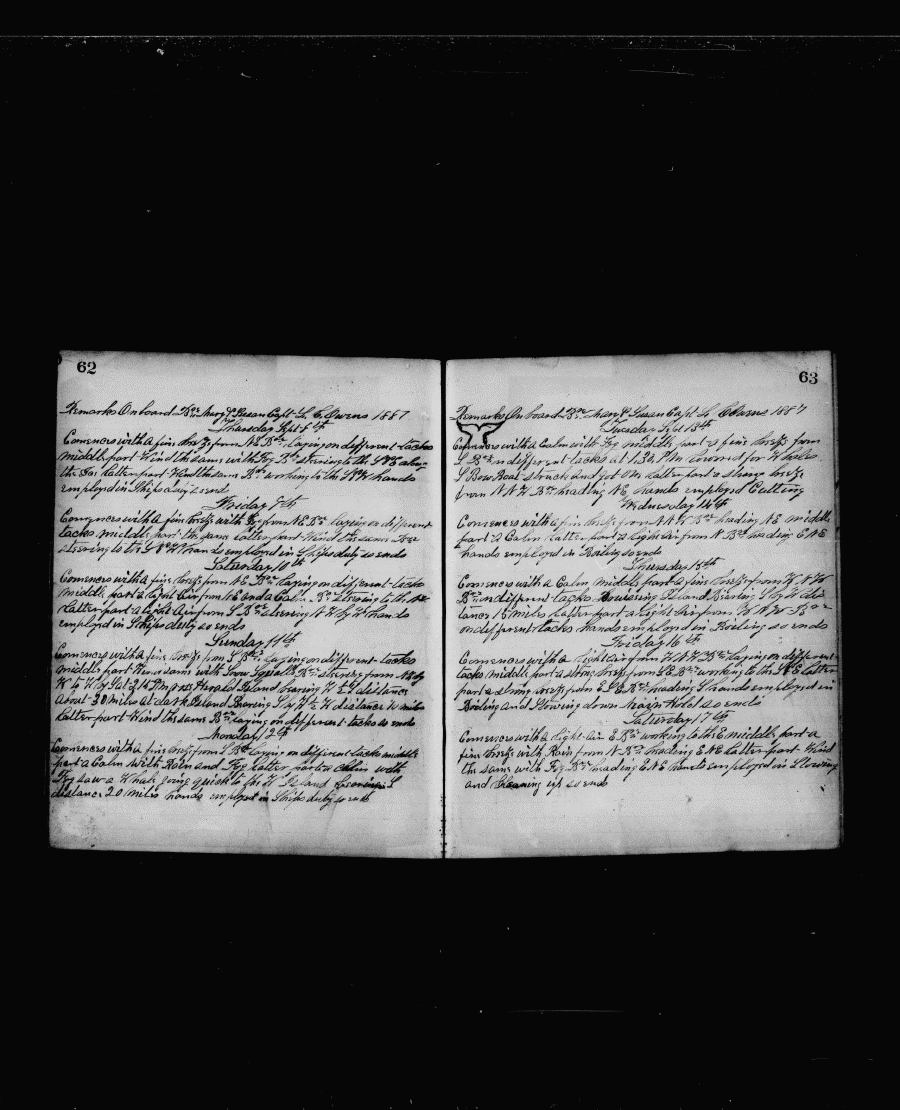 62
Remarks On board Bqe Mary & Susan Capt L C Owens 1887
Thursday Sept
Comences with a fine breeze from NE Bqe laying on different tacks
middle part Wind the same with Fog Bqe steering to the along
the Ice Latter part Wind the same Bqe working to the hands
employd in Ships duty so ends
Friday 9th
Comences with a fine breeze with Fog from NE Bqe laying on different
tacks middle part the same Latter part Wind the same Bqe
steering to the hands employd in Ships duty so ends
Saturday 10th
Comences with a fine breeze from NE Bqe laying on different tacks
middle part a light Air from NE and a Calm Bqe steering to the
Latter part a light Air from S Bqe steering W by hands
employd in Ships duty so ends
Sunday 11th
Comences with a fine breeze from S Bqe laying on different tacks
middle part Wind same with Snow Squalls Bqe steering from
W to W by S at 2.45 Pm pass Herald Island bearing W ½ distance
about 30 miles at dark Island bearing S by W ½ W distance miles
Latter part Wind the same Bqe laying on different tacks so ends
Monday 12th
Comences with a fine breeze from S Bqe laying on different tacks middle
part a Calm with Rain and Fog Latter part a Calm with
Fog saw a Whale going quick to the W Island bearing S
distance 20 miles hands employd in Ships duty so ends
63
Remarks On board Bqe Mary & Susan Capt L C Owens 1887
Tuesday Sept 13th
Comences with a Calm with Fog middle part a fine breeze from
S Bqe on different tacks at 1.30 P.M. lowered for Whales
S Bow Boat struck and got One Latter part a strong breeze
from N N W Bqe heading NE hands employd Cutting
Wednesday 14th
Comences with a fine breeze from N N W Bqe heading NE middle
part a Calm Latter part a light Air from N Bqe heading E N E
hands employd in Boiling so ends
Thursday 15th
Comences with a Calm middle part a fine breeze from W N W
Bqe on different tacks Island Bearing S by W dis
tance 15 miles Latter part a light Air from W N W Bqe
on different tacks hands employd in Boiling so ends
Friday 16th
Comences with a light air from W N W Bqe laying on different
tacks middle part a strong breeze from S E Bqe working to the Latter
part a strong breeze from E S E Bqe heading S hands employd in
Boiling and Stowing down main Hold so ends
Saturday 17th
Comences with a light air E Bqe working to the E middle part a
fine breeze with Rain from N Bqe heading E N E Latter part Wind
the same with Fog Bqe heading E N E hands employd in Stowing
and Cleaning up so ends